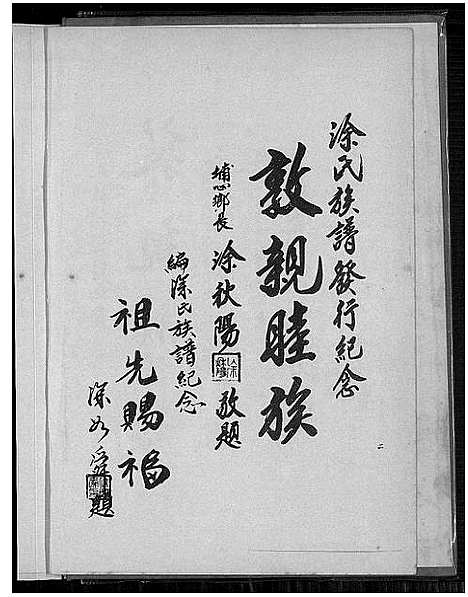 涂氏族譜發行紀念
敦親睦族
埔心鄉長 涂秋陽 敬題
編涂氏族譜紀念
祖先賜福
涂 題
二